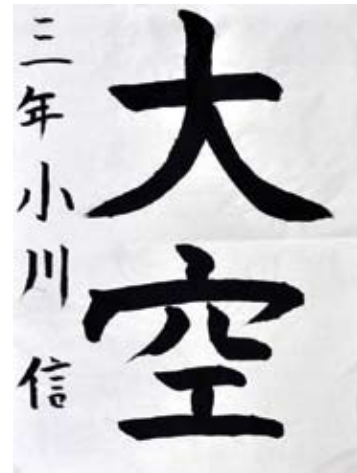 大空
三年 小川 信